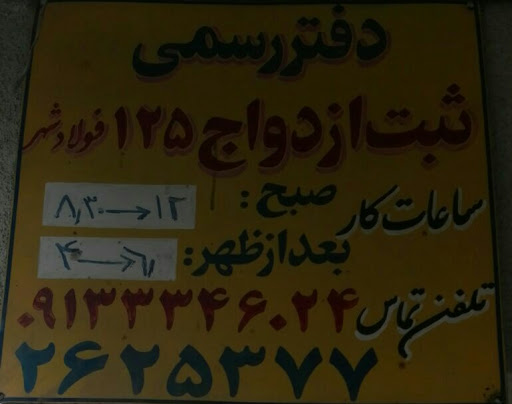 دفتر رسمی
ثبت ازدواج ۱۲۵ فولادشهر
ساعات کار صبح: ۸٫۳۰ → ۱۲
بعد از ظهر: ۴ → ۶٫
تلفن تماس ۰۹۱۳۳۳۴۶۰۲۴
۲۶۲۵۳۷۷